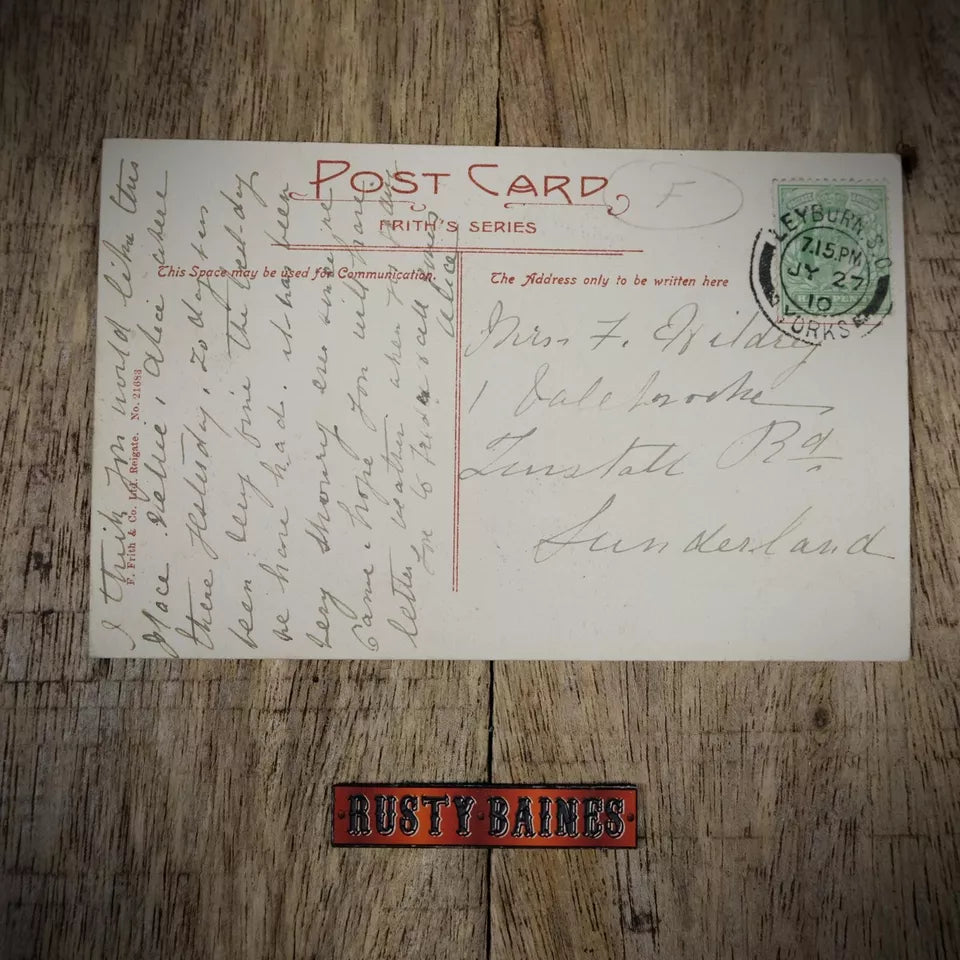 POST CARD
FRITH'S SERIES
This Space may be used for Communication.
The Address only to be written here
F
LEYBURN S.O
7.15.PM
JY 27
10
YORKS
Mrs F. Wildrey
1 Dalebrooke
Tunstall Rd
Sunderland
I think you would like this
place Nellie & Alice were
there yesterday, to day has
been very fine the best day
we have had. it has been
very showery ever since we
came I hope you will have
better weather when you
love to Freda & all
Alice
F. Frith & Co. Ltd. Reigate. No. 21683
RUSTY BAINES